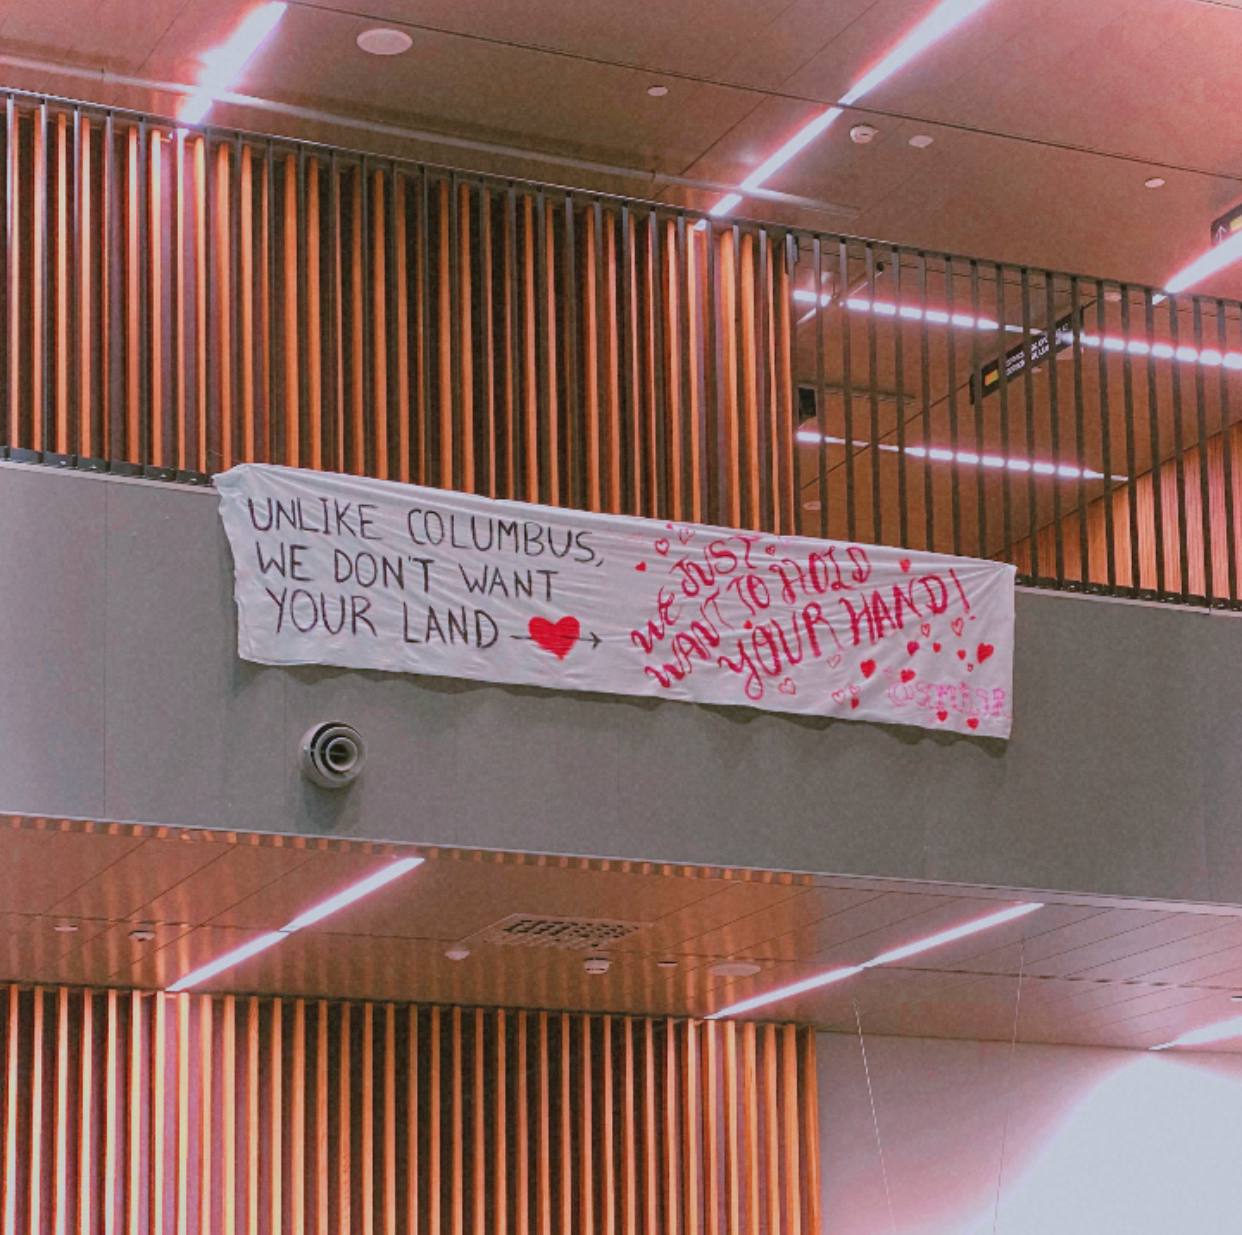 UNLIKE COLUMBUS,
WE DON'T WANT
YOUR LAND
WE JUST
WANT TO HOLD
YOUR HAND!